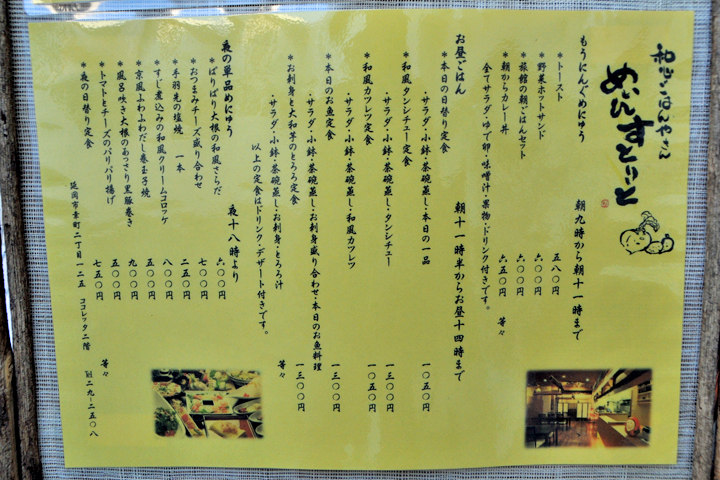 和心ごはんやさん
めいんすとりーと
もうにんぐめにゅう 朝九時から朝十一時まで
*トースト 五八〇円
*野菜ホットサンド 六〇〇円
*旅館の朝ごはんセット 六〇〇円
*朝からカレー丼 六五〇円 等々
全てサラダ・ゆで卵・味噌汁・果物・ドリンク付きです。
お昼ごはん 朝十一時半からお昼十四時まで
*本日の日替り定食
・サラダ・小鉢・茶碗蒸し・本日の一品 一〇五〇円
*和風タンシチュー定食
・サラダ・小鉢・茶碗蒸し・タンシチュー 一三〇〇円
*和風カツレツ定食
・サラダ・小鉢・茶碗蒸し・和風カツレツ 一〇五〇円
*本日のお魚定食
・サラダ・小鉢・茶碗蒸し・お刺身盛り合わせ・本日のお魚料理 一三〇〇円
*お刺身と大和芋のとろろ定食
・サラダ・小鉢・茶碗蒸し・お刺身・とろろ汁 一三〇〇円
以上の定食はドリンク・デザート付きです。 等々
夜の単品めにゅう 夜十八時より
*ぱりぱり大根の和風さらだ 六〇〇円
*おつまみチーズ盛り合わせ 七〇〇円
*手羽先の塩焼 一本 二五〇円
*すじ煮込みの和風クリームコロッケ 八〇〇円
*京風ふわふわだし巻玉子焼 五〇〇円
*風呂吹き大根のあっさり黒豚巻き 九〇〇円
*トマトとチーズのパリパリ揚げ 五〇〇円
*夜の日替り定食 七五〇円 等々
延岡市幸町二丁目一二五 ココレッタ二階 ℡二九-二五〇八